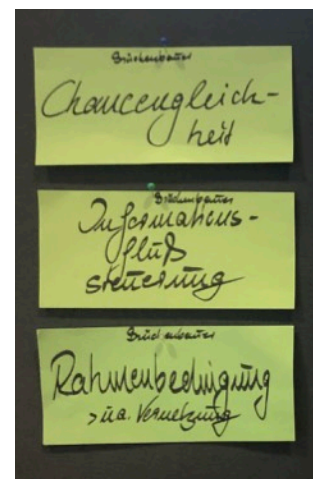 Brückenbauer
Chancengleich-
heit
Brückenbauer
Informations-
fluß
steuerung
Brückenbauer
Rahmenbedingung
> u.a. Vernetzung